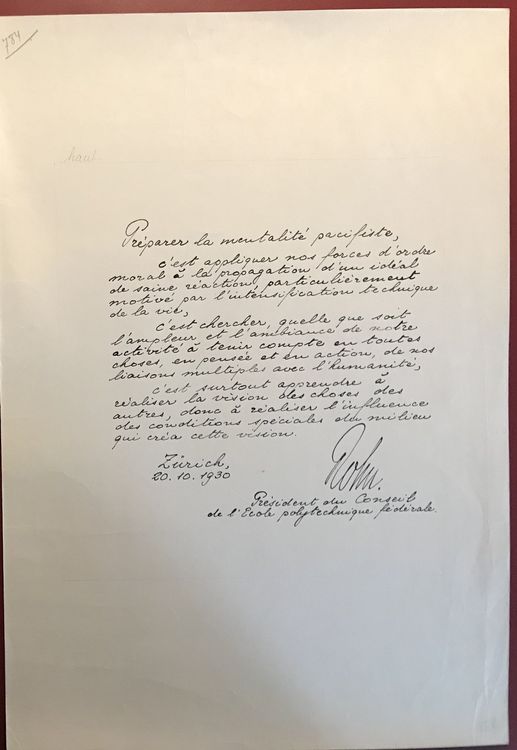 784
haut
Préparer la mentalité pacifiste,
c'est appliquer nos forces d'ordre
moral à la propagation d'un idéal
de saine réaction, particulièrement
motivé par l'intensification technique
de la vie,
c'est chercher, quelle que soit
l'ampleur et l'ambiance de notre
activité à tenir compte en toutes
choses, en pensée et en action, de nos
liaisons multiples avec l'humanité,
c'est surtout apprendre à
réaliser la vision des choses des
autres, donc à réaliser l'influence
des conditions spéciales du milieu
qui créa cette vision.
Zürich,
20.10.1930
Rohn.
Président du Conseil
de l'Ecole polytechnique fédérale.